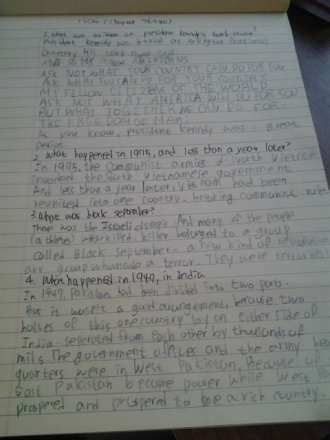 1. what was written on president kennedy's tomb stone?
President kennedy was buried at Arlington National
Cemetery. His tomb
AND SO MY FELLOW AMERICANS
ASK NOT WHAT YOUR COUNTRY CAN DO FOR YOU
ASK WHAT YOU CAN DO FOR YOUR COUNTRY
MY FELLOW CITIZENS OF THE WORLD
ASK NOT WHAT AMERICA WILL DO FOR YOU
BUT WHAT TOGETHER WE CAN DO FOR
THE FREEDOM OF MAN.
As you know, president kennedy was great
2. What happened in 1975, and less than a year later?
In 1975, the communist armies of North Vietnam
invaded the South Vietnamese government
And less than a year later, Vietnam had been
reunited into one country, under communist rule
3. What was black september?
There was the Israeli olympic. And many of the people
killed belonged to a group
called Black September - a new kind of
group a terror. They were terrorists
4. What happened in 1947, in India
In 1947, Pakistan had been divided into two parts.
But it wasn't a good arrangement, because two
halves of this one country lay on either side of
India - seperated from each other by thousands of
mils. The government offices and the army head
quarters were in West Pakistan. Because of
East Pakistan became poorer while West
prospered and prospered to be a rich country.